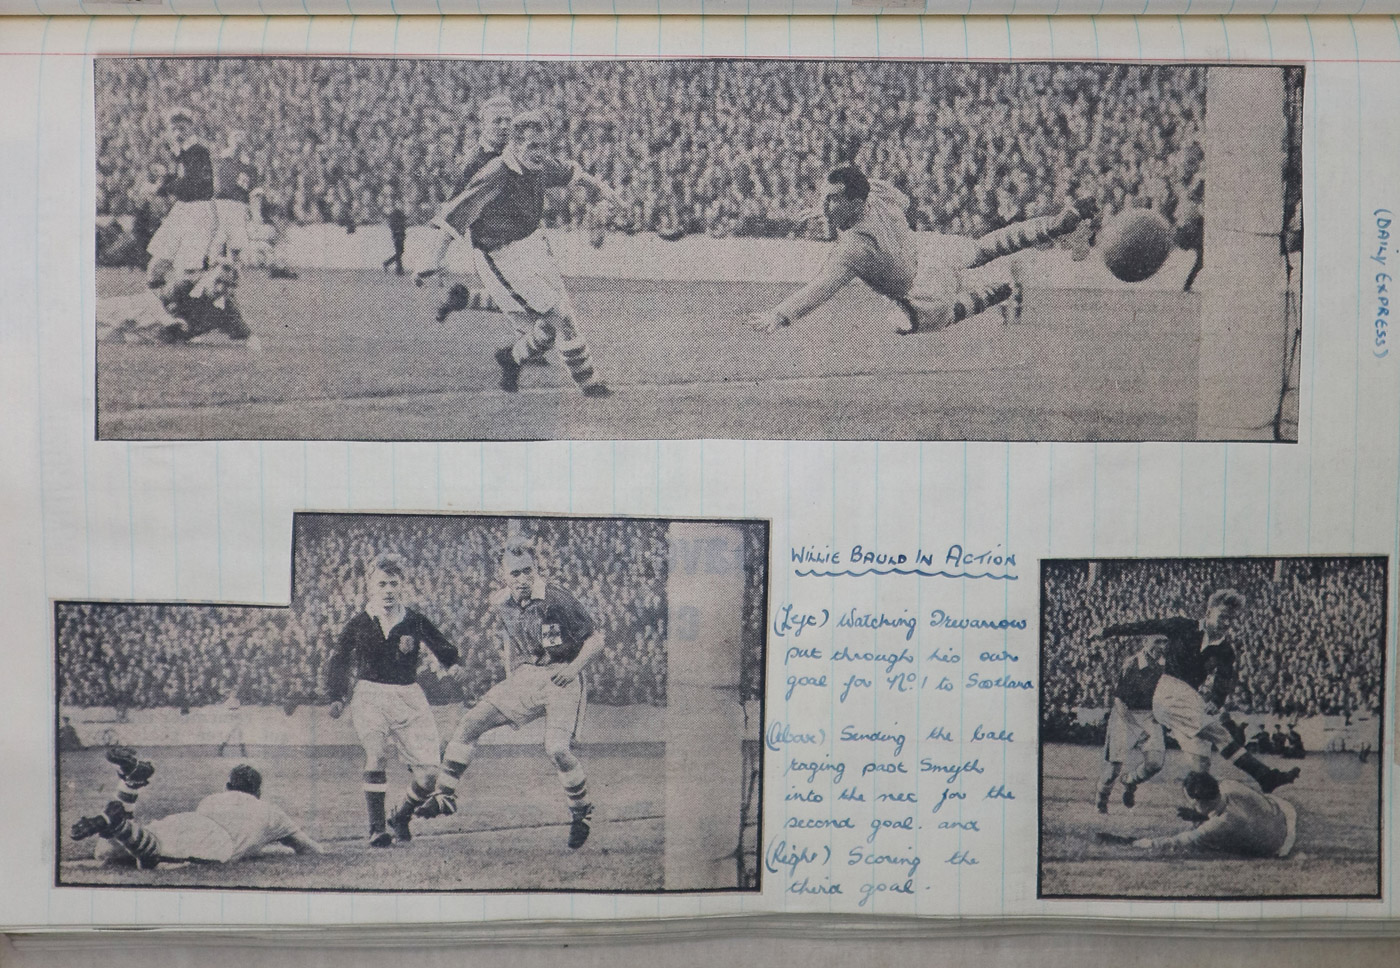 (DAILY EXPRESS)
WILLIE BAULD IN ACTION
(Left) Watching Trevorrow
put through his own
goal for No. 1 to Scotland
(Above) Sending the ball
raging past Smyth
into the net for the
second goal. and
(Right) Scoring the
third goal.